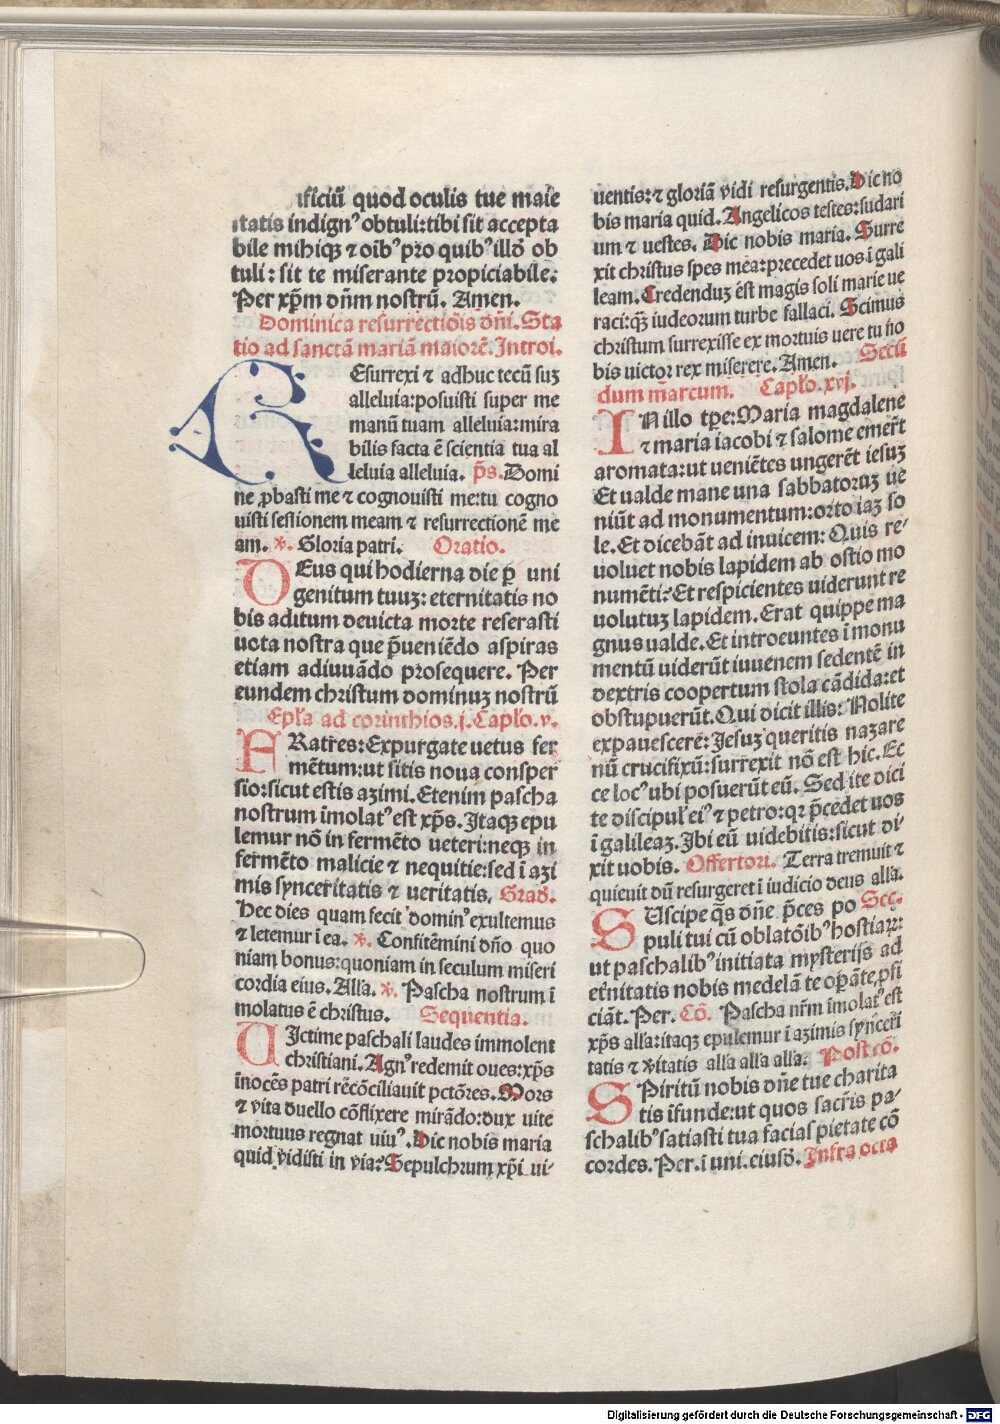 ificiū quod oculis tue maie
statis indignꝰ obtuli:tibi sit accepta
bile mihiqꝫ ⁊ oībꝰ pro quibꝰ illō ob
tuli: sit te miserante propiciabile:
Per xp̄m dn̄m nostrū. Amen.
Dominica resurrectiōis dn̄i. Sta
tio ad sanctā mariā maiorē. Introi.
REsurrexi ⁊ adhuc tecū suꝫ
alleluia:posuisti super me
manū tuam alleluia:mira
bilis facta ē scientia tua al
leluia alleluia. p̄s. Domi
ne ꝓbasti me ⁊ cognouisti me:tu cogno
uisti sessionem meam ⁊ resurrectionē me
am. ℣. Gloria patri. Oratio.
DEus qui hodierna die ꝑ uni
genitum tuuꝫ: eternitatis no
bis aditum deuicta morte reserasti
uota nostra que p̄ueniēdo aspiras
etiam adiuuādo prosequere. Per
eundem christum dominuꝫ nostrū
Epl̄a ad corinthios.j. Capl̄o.v.
FRatres: Expurgate uetus fer
mētum:ut sitis noua consper
sio:sicut estis azimi. Etenim pascha
nostrum īmolatꝰ est xp̄s. Itaqꝫ epu
lemur nō in fermēto ueteri:neqꝫ in
fermēto malicie ⁊ nequitie:sed ī azi
mis synceritatis ⁊ ueritatis. Grad.
Hec dies quam fecit dominꝰ exultemus
⁊ letemur ī ea. ℣. Confitēmini dn̄o quo
niam bonus:quoniam in seculum miseri
cordia eius. All'a. ℣. Pascha nostrum ī
molatus ē christus. Sequentia.
UIctime paschali laudes immolent
christiani. Agnꝰ redemit oues:xp̄s
inocēs patri rēcōciliauit pctōres. Mors
⁊ vita duello cōflixere mirādo:dux uite
mortuus regnat uiuꝰ. Dic nobis maria
quid vidisti in via? Sepulchrum xp̄i ui-
uentis:⁊ gloriā vidi resurgentis. Dic no
bis maria quid. Angelicos testes:sudari
um ⁊ uestes. Dic nobis maria. Surre
xit christus spes mea:precedet uos ī gali
leam. Credenduꝫ est magis soli marie ue
raci:qꝫ̄ iudeorum turbe fallaci. Scimus
christum surrexisse ex mortuis uere tu no
bis uictor rex miserere. Amen. Secū
dum m̄arcum. Capl̄o.xvj.
IN illo tp̄e: Maria magdalene
⁊ maria iacobi ⁊ salome emer̄t
aromata:ut ueniētes ungerēt iesuꝫ
Et ualde mane una sabbatoruꝫ ue
niūt ad monumentum:orto iaꝫ so
le. Et dicebāt ad inuicem: Quis re-
uoluet nobis lapidem ab ostio mo
numēti? Et respicientes uiderunt re
uolutuꝫ lapidem. Erat quippe ma
gnus ualde. Et introeuntes ī monu
mentū uiderūt iuuenem sedentē in
dextris coopertum stola cādida:et
obstupuerūt. Qui dicit illis: Nolite
expauescere: Iesuꝫ queritis nazare
nū crucifixū:surrexit nō est hic. Ec
ce locꝰ ubi posuerūt eū. Sed ite dici
te discipul' eiꝰ ⁊ petro:qꝛ p̄cedet uos
ī galileaꝫ. Ibi eū uidebitis:sicut di-
xit uobis. Offertori. Terra tremuit ⁊
quieuit dū resurgeret ī iudicio deus all'a.
SUscipe qs̄ dn̄e p̄ces po Sec.
puli tui cū oblatōibꝰ hostiaꝝ:
ut paschalibꝰ initiata mysterijs ad
et̄nitatis nobis medelā te opāte,ꝓfi
ciāt. Per. Cō. Pascha nr̄m īmolatꝰ est
xp̄s all'a:itaqꝫ epulemur ī azimis synceri
tatis ⁊ v̄itatis all'a all'a all'a. Postcō.
SPiritū nobis dn̄e tue charita
tis īfunde:ut quos sacr̄is pa-
schalibꝰ satiasti tua facias pietate cō
cordes. Per. ī uni. eiusđ. Infra octa
Digitalisierung gefördert durch die Deutsche Forschungsgemeinschaft - DFG